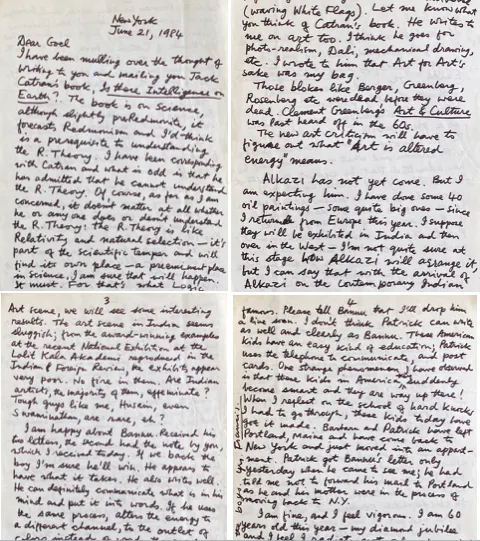 New York
June 21, 1984
Dear Goel
I have been mulling over the thought of
writing to you and mailing you Jack
Catran's book, Is there Intelligence on
Earth?. The book is on Science,
although slightly preRedmonist, it
forecasts Redmonism and I'd think
is a prerequisite to understanding
the R. Theory. I have been corresponding
with Catran and what is odd is that he
has admitted that he cannot understand
the R. Theory. Of course, as far as I am
concerned, it doesn't matter at all whether
he or any one does or don't understand
the R. Theory: the R. Theory is like
Relativity and natural selection — it's
part of the Scientific temper and will
find its own place — a preeminent place
in science, I am sure that will happen.
It must. For that's what Logic
(waving White Flags). Let me know what
you think of Catran's book. He writes to
me on art too. I think he goes for
photo-realism, Dali, mechanical drawing,
etc. I wrote to him that Art for Art's
sake was my bag.
Those blokes like Berger, Greenberg,
Rosenberg etc were dead before they were
dead. Clement Greenberg's Art & Culture
was last heard of in the 60s.
The new art criticism will have to
figure out what "Art is altered
energy" means.
Alkazi has not yet come. But I
am expecting him. I have done some 40
oil paintings — some quite big ones — since
I returned from Europe this year. I suppose
they will be exhibited in India and then
over in the West — I'm not quite sure at
this stage how Alkazi will arrange it,
but I can say that with the arrival of
Alkazi on the Contemporary Indian
3
Art scene, we will see some interesting
results. The art scene in Indian seems
sluggish: from the award-winning examples
at the recent National Exhibition at the
Lalit Kala Akademi reproduced in the
Indian & Foreign Review, the exhibits appear
very poor. No fire in them. Are Indian
artists, the majority of them, effeminate?
Tough guys like me, Husein, even
Swaminathan, are rare, eh?
I am happy about Bannu. Received his
two letters, the second had the note by you,
which I received today. If we back the
boy I'm sure he'll win. He appears to
have what it takes. He also writes well.
He can definitely communicate what is in his
mind and put it into words. If he uses
the same process, alters the energy to
a different channel, to the outlet of
4
famous. Please tell Bannu that I'll drop him
a line soon. I don't think Patrick can write
as well and clearly as Bannu. These American
kids have an easy kind of education; Patrick
uses the telephone to communicate, and post
cards. One strange phenomenon I have observed
is that these kids in America suddenly
become smart and they are way up there!
When I reflect on the school of hard knocks
I had to go through, these kids today have
got it made. Barbara and Patrick have left
Portland, Maine and have come back to
New York and just moved into an apart-
ment. Patrick got Bannu's letter only
yesterday when he came to see me; he had
told me not to forward his mail to Portland
as he and his mother were in the process of
moving back to N.Y.
I am fine, and I feel vigorous. I am 60
years old this year — my diamond jubilee